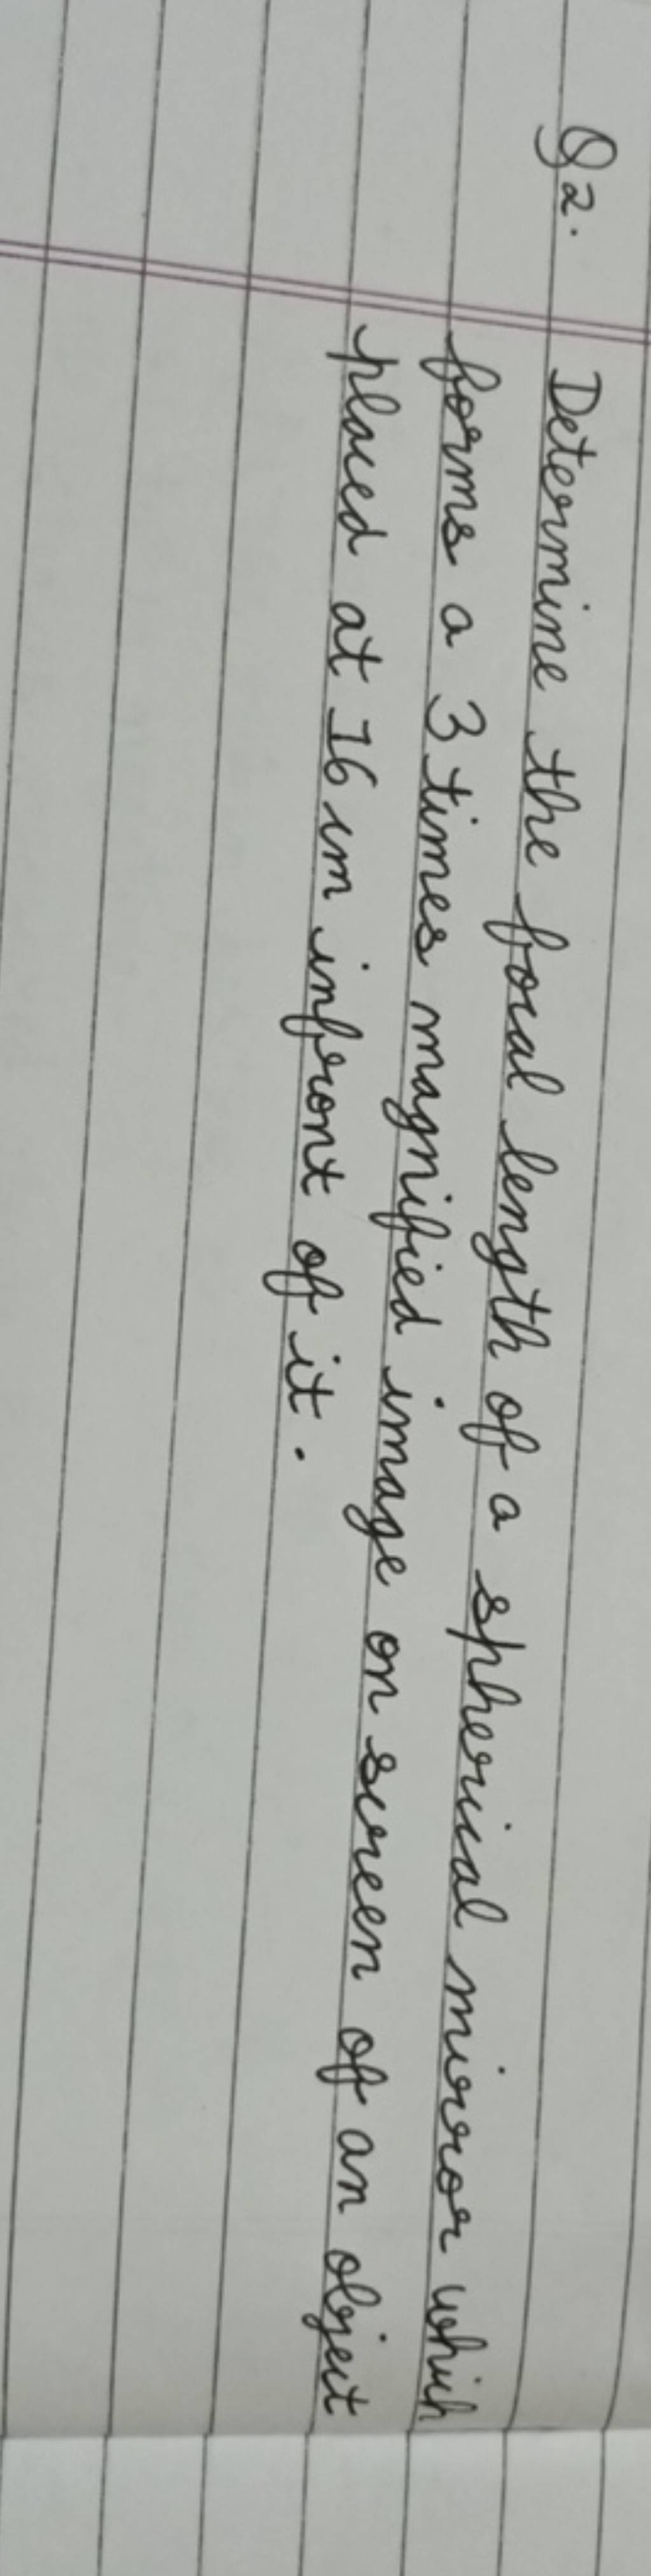 Q2. Determine the focal length of a spherical mirror which
forms a 3 times magnified image on screen of an object
placed at 16 cm infront of it.